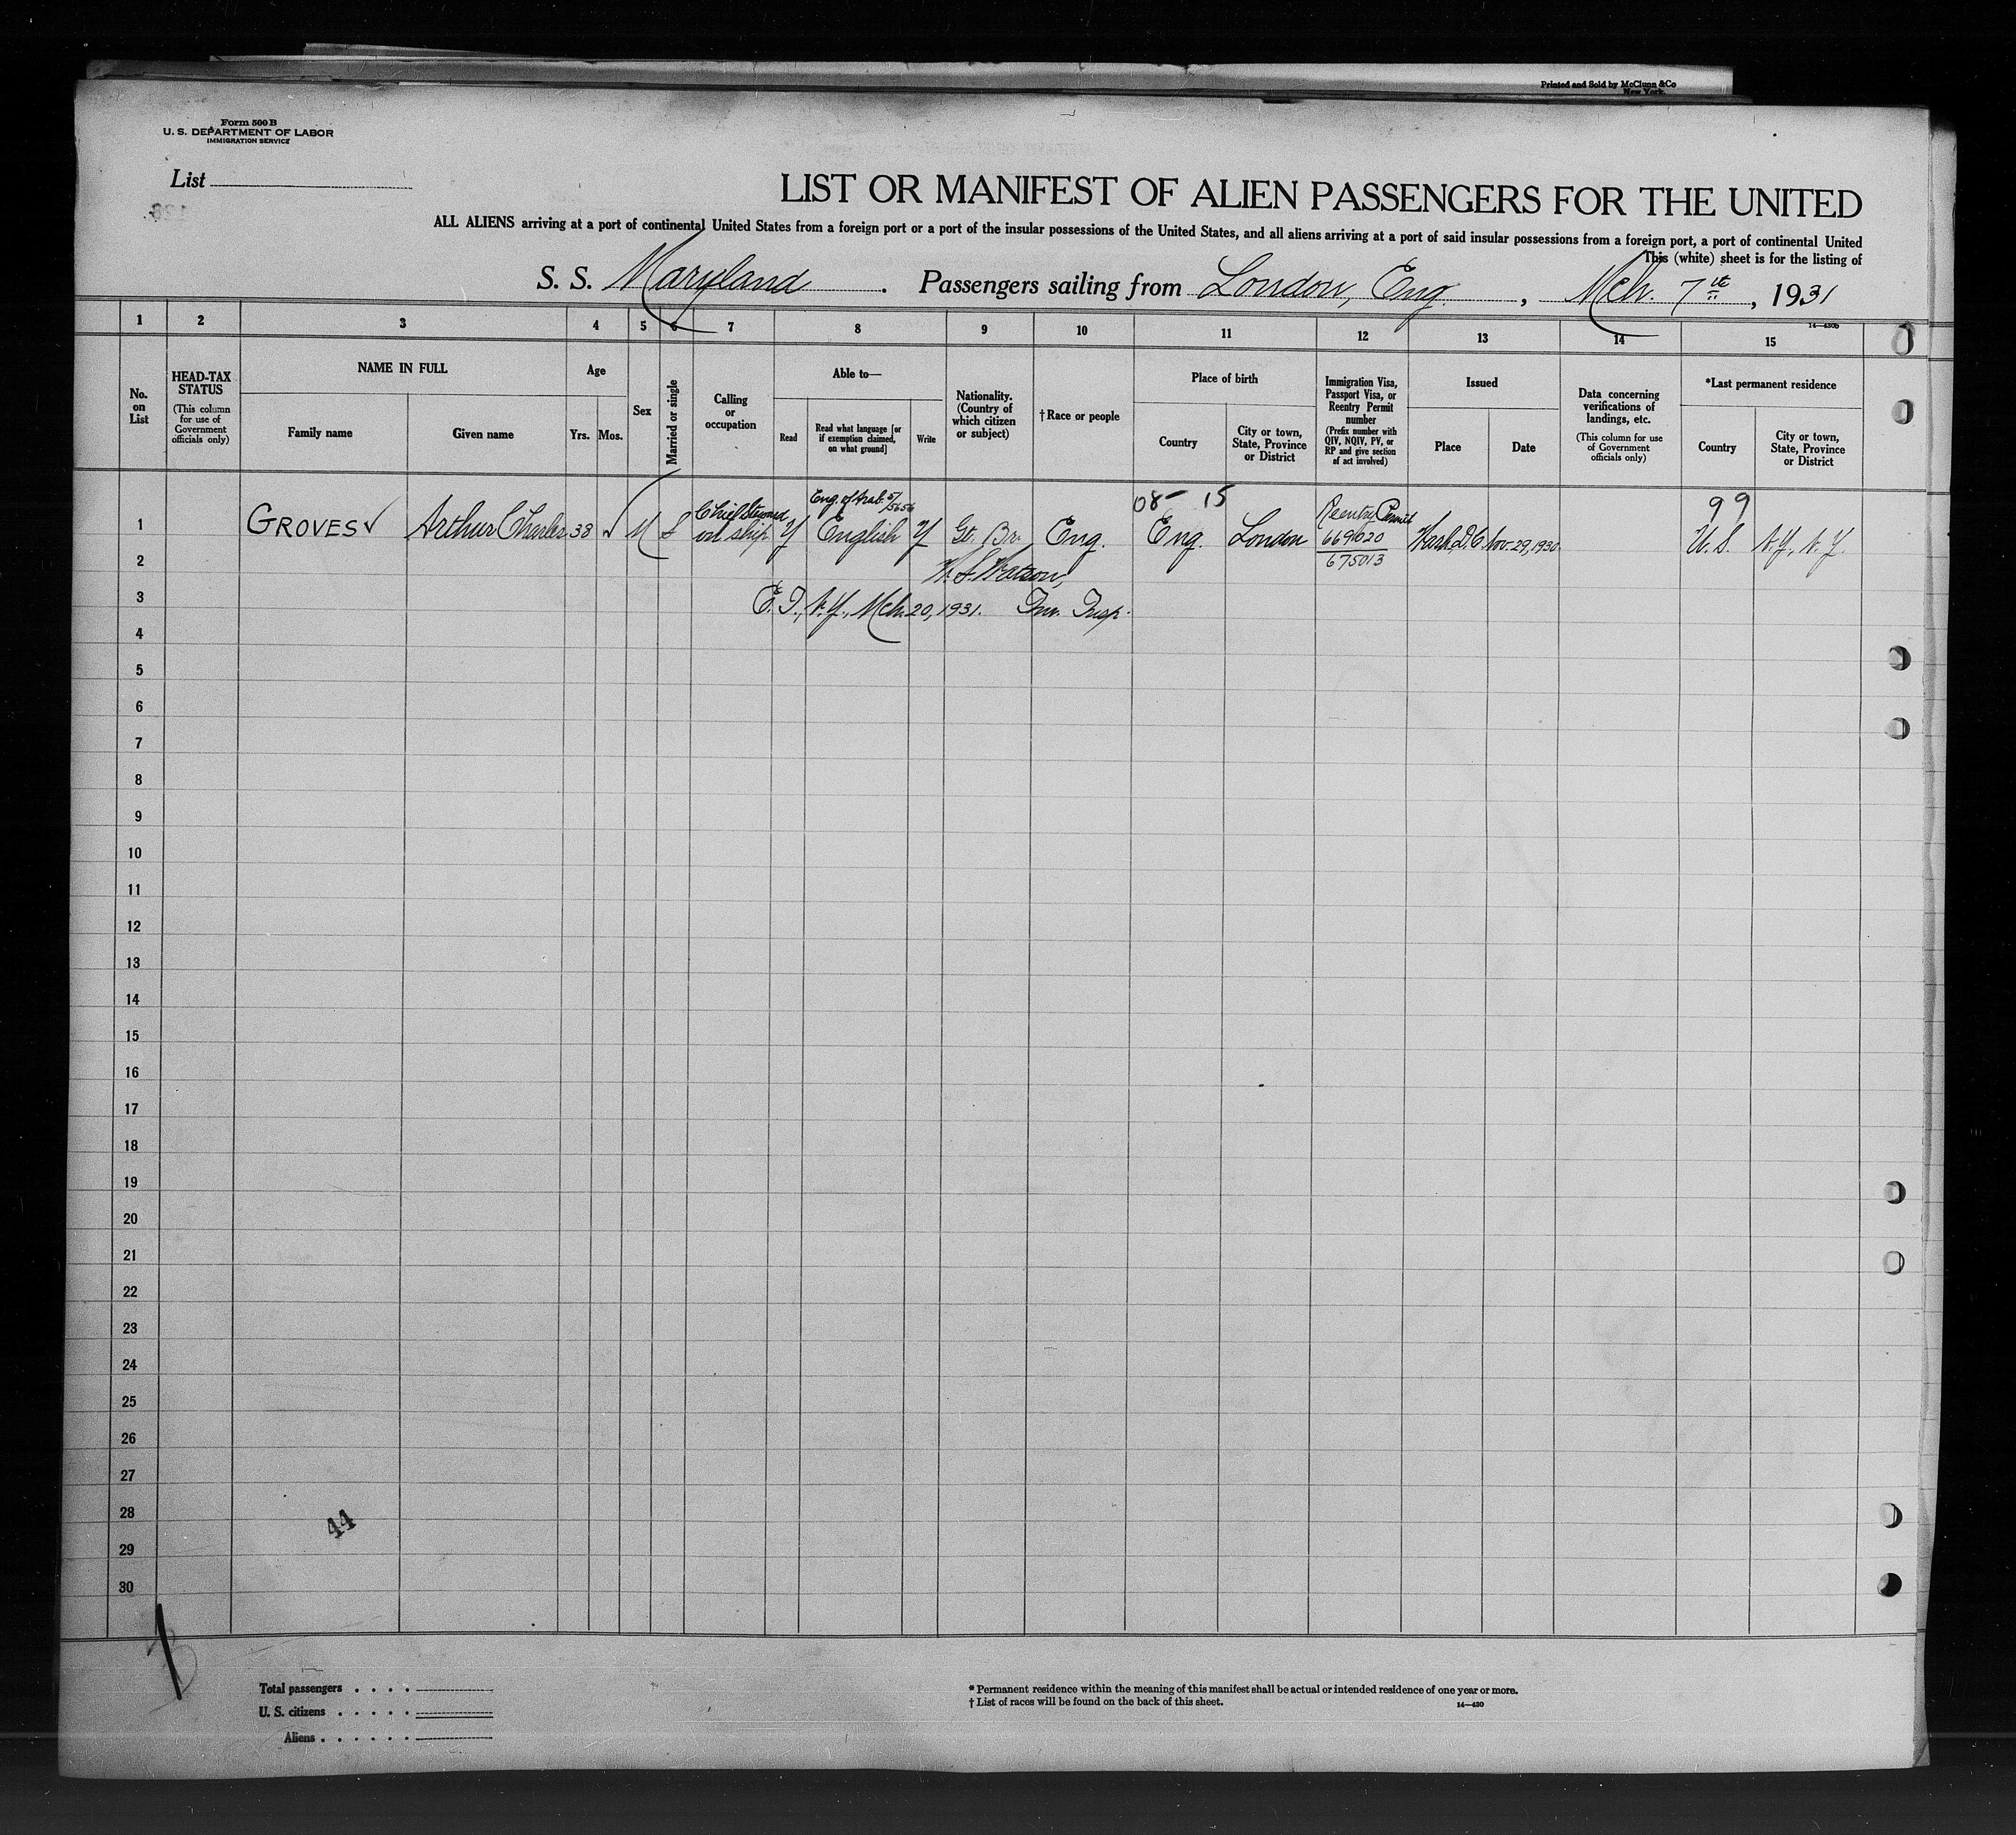 Printed and Sold by McClunn & Co
New York.
Form 500 B
U. S. DEPARTMENT OF LABOR
IMMIGRATION SERVICE
List
LIST OR MANIFEST OF ALIEN PASSENGERS FOR THE UNITED
ALL ALIENS arriving at a port of continental United States from a foreign port or a port of the insular possessions of the United States, and all aliens arriving at a port of said insular possessions from a foreign port, a port of continental United
This (white) sheet is for the listing of
S. S. Maryland . Passengers sailing from London, Eng. , Mch. 7th , 1931
14—430b
1 2 3 4 5 6 7 8 9 10 11 12 13 14 15
No. on List
HEAD-TAX STATUS
(This column for use of Government officials only)
NAME IN FULL
Family name
Given name
Age
Yrs.
Mos.
Sex
Married or single
Calling or occupation
Able to—
Read
Read what language [or if exemption claimed, on what ground]
Write
Nationality. (Country of which citizen or subject)
† Race or people
Place of birth
Country
City or town, State, Province or District
Immigration Visa, Passport Visa, or Reentry Permit number
(Prefix number with QIV, NQIV, PV, or RP and give section of act involved)
Issued
Place
Date
Data concerning verifications of landings, etc.
(This column for use of Government officials only)
*Last permanent residence
Country
City or town, State, Province or District
08- 15 99
1 GROVES ✓ Arthur Charles 38 ✓ M S Chief Steward on ship Y English Y Gt. Br. Eng. Eng. London Reentry Permit 669620 675013 Wash. D.C. Nov. 29, 1930. U.S. N.Y., N.Y.
2 Watson,
3 N.Y., Mch. 20, 1931. Imm. Insp.
4
5
6
7
8
9
10
11
12
13
14
15
16
17
18
19
20
21
22
23
24
25
26
27
28
44
29
30
Total passengers . . . .
U. S. citizens . . . . .
Aliens . . . . . .
* Permanent residence within the meaning of this manifest shall be actual or intended residence of one year or more.
† List of races will be found on the back of this sheet.
14—430